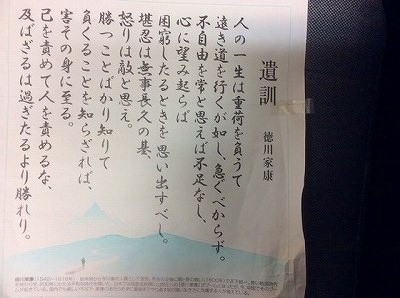 遺訓
徳川家康
人の一生は重荷を負うて
遠き道を行くが如し、急ぐべからず。
不自由を常と思えば不足なし、
心に望み起らば
困窮したるときを思い出すべし。
堪忍は無事長久の基、
怒りは敵と思え。
勝つことばかり知りて
負くることを知らざれば、
害その身に至る。
己を責めて人を責めるな、
及ばざるは過ぎたるより勝れり。